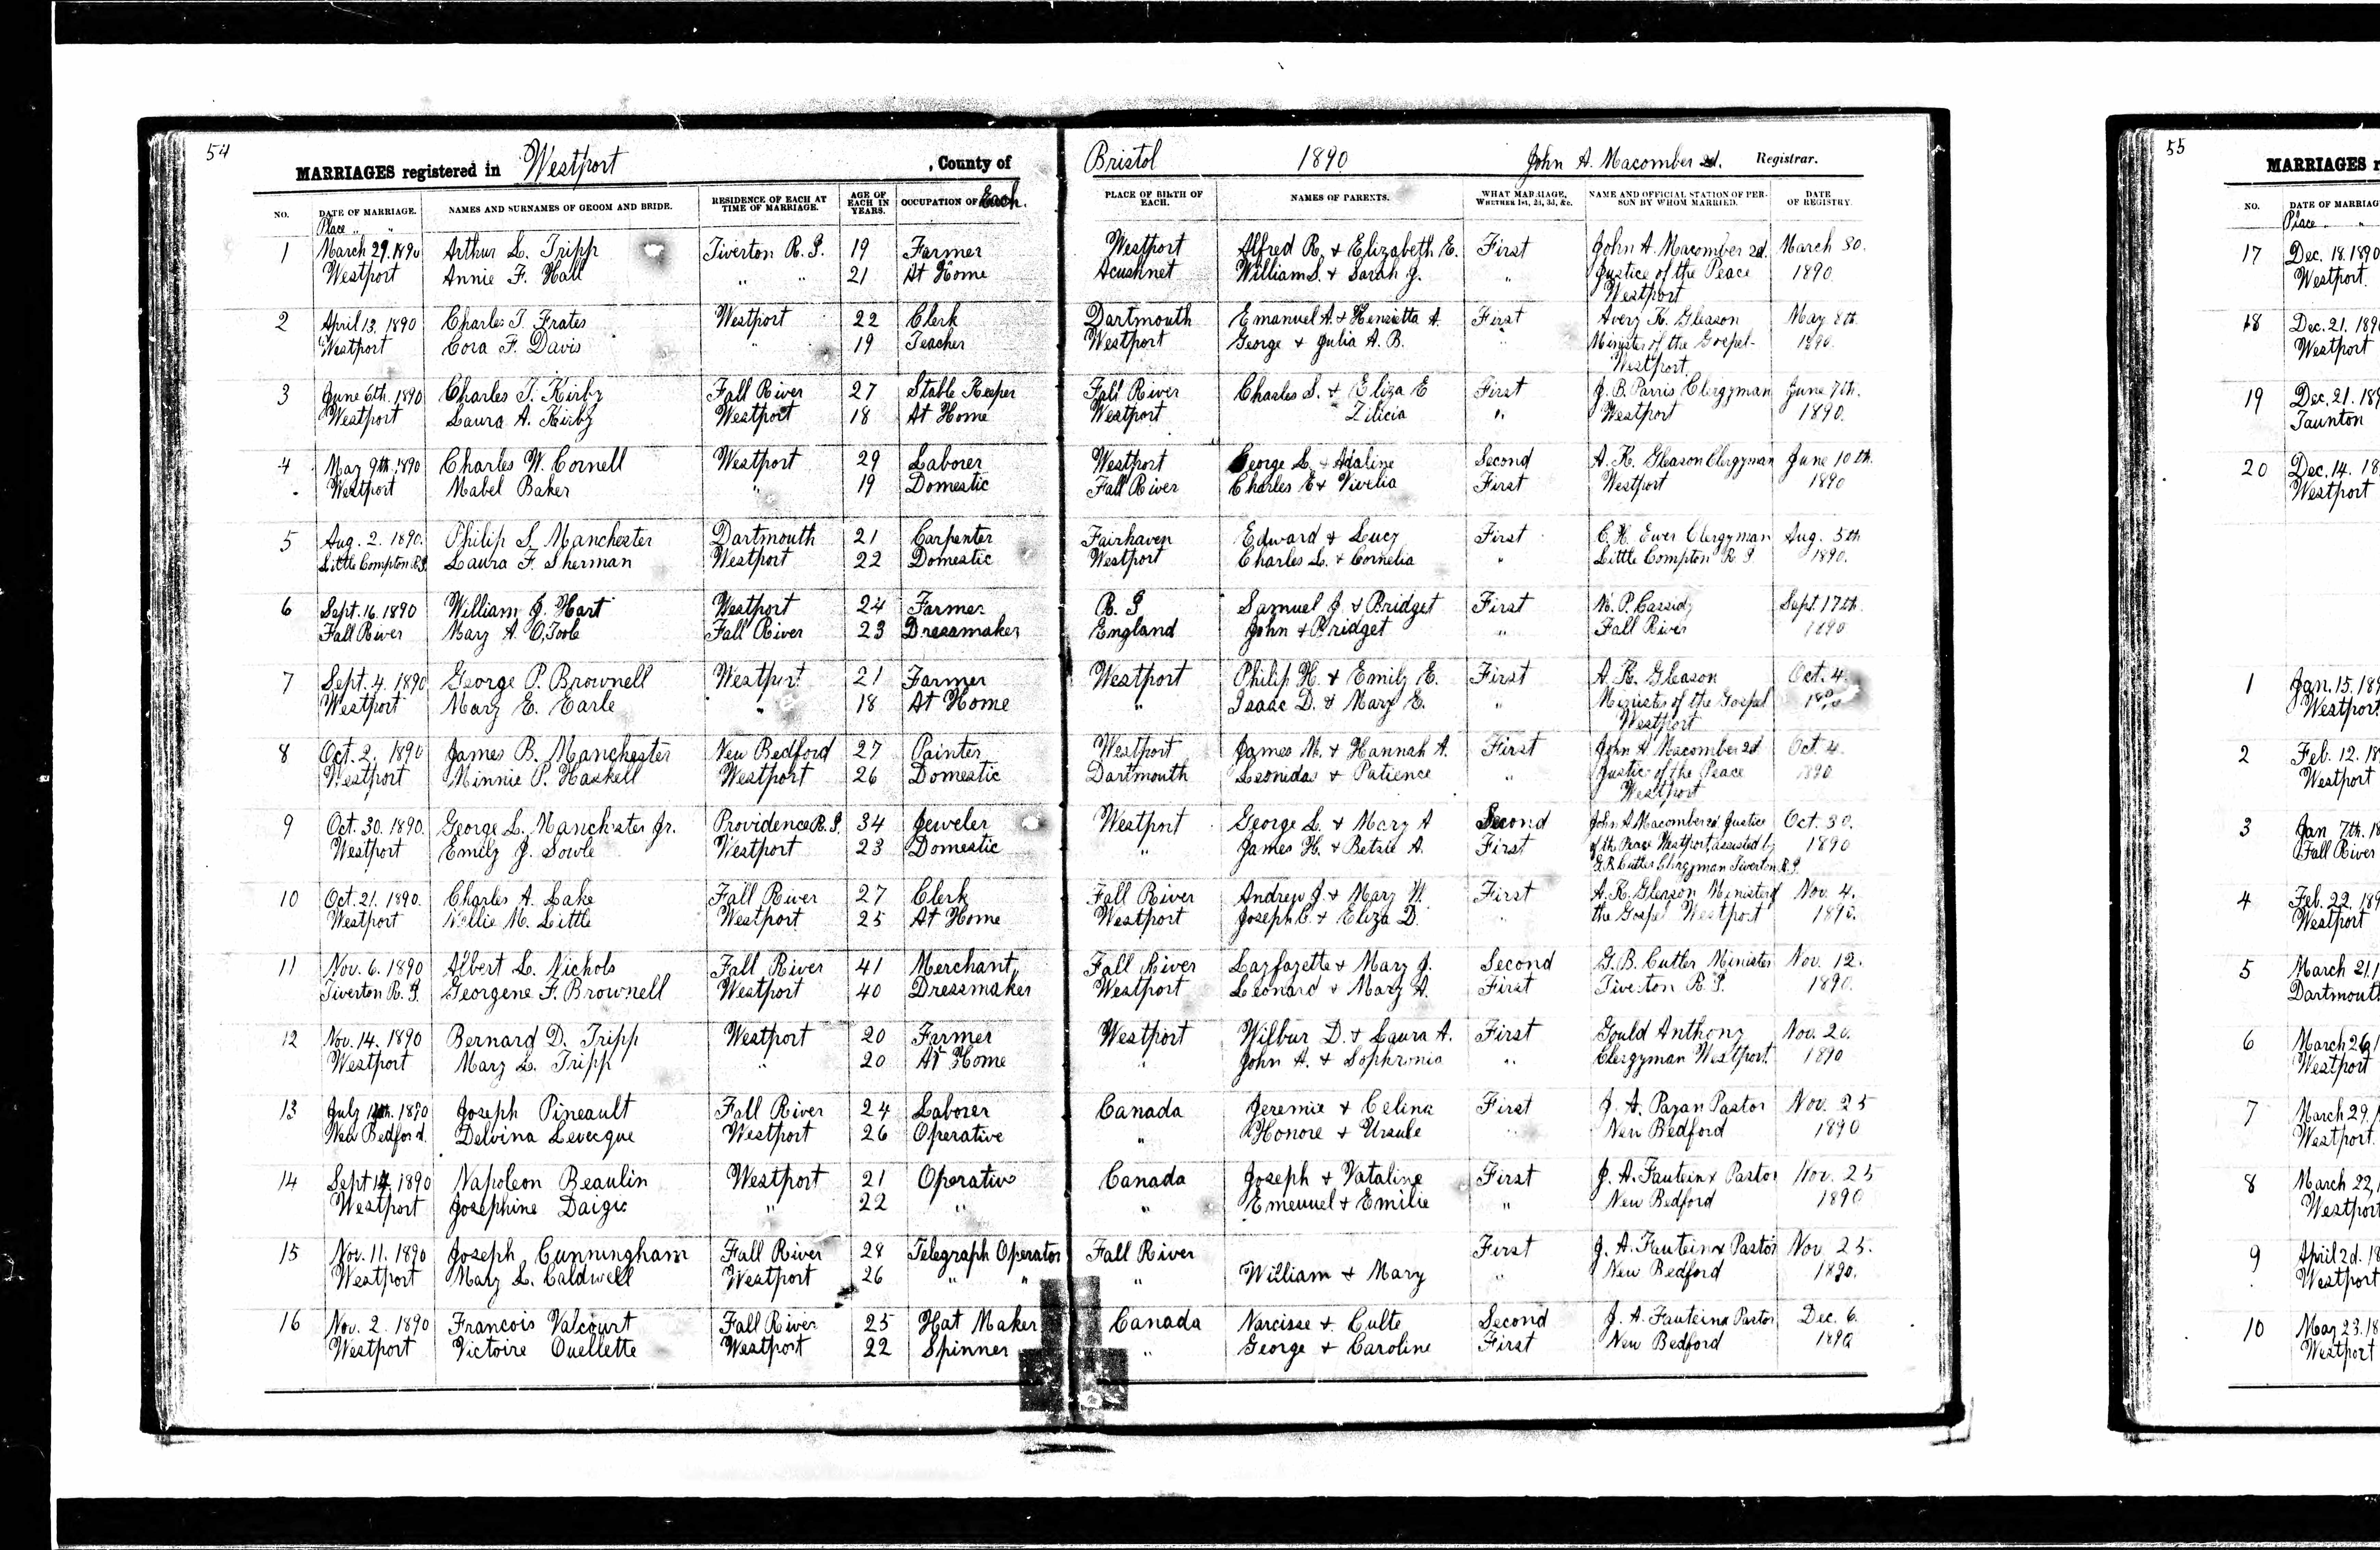 54
MARRIAGES registered in Westport , County of Bristol 1890 John A. Macomber 2d. Registrar.
NO. DATE OF MARRIAGE. NAMES AND SURNAMES OF GROOM AND BRIDE. RESIDENCE OF EACH AT TIME OF MARRIAGE. AGE OF EACH IN YEARS. OCCUPATION OF Each. PLACE OF BIRTH OF EACH. NAMES OF PARENTS. WHAT MARRIAGE, WHETHER 1st, 2d, 3d, &c. NAME AND OFFICIAL STATION OF PERSON BY WHOM MARRIED. DATE OF REGISTRY.
Place " "
1 March 29. 1890 Arthur L. Tripp Tiverton R. I. 19 Farmer Westport Alfred R. & Elizabeth E. First John A. Macomber 2d. March 30.
Westport Annie F. Hall " " 21 At Home Acushnet William S. & Sarah J. " Justice of the Peace 1890
Westport
2 April 13. 1890 Charles T. Frates Westport 22 Clerk Dartmouth Emanuel A. & Henrietta A. First Avery K. Gleason May 8th
Westport Cora F. Davis " 19 Teacher Westport George & Julia A. B. " Minister of the Gospel 1890.
Westport
3 June 6th. 1890 Charles T. Kirby Fall River 27 Stable Keeper Fall River Charles S. & Eliza E First J. B. Parris Clergyman June 7th.
Westport Laura A. Kirby Westport 18 At Home Westport Zilicia " Westport 1890.
4 May 9th. 1890 Charles W. Cornell Westport 29 Laborer Westport George L. & Adaline Second A. K. Gleason Clergyman June 10th.
Westport Mabel Baker " 19 Domestic Fall River Charles E & Vivelia First Westport 1890
5 Aug. 2. 1890. Philip S. Manchester Dartmouth 21 Carpenter Fairhaven Edward & Lucy First C. H. Ewer Clergyman Aug. 5th
Little Compton R.I. Laura F. Sherman Westport 22 Domestic Westport Charles L. & Cornelia " Little Compton R. I. 1890.
6 Sept. 16. 1890 William J. Hart Westport 24 Farmer R. I Samuel J. & Bridget First P. Cassidy Sept. 17th.
Fall River Mary A. O,Toole Fall River 23 Dressmaker England John & Bridget " Fall River 1890
7 Sept. 4. 1890 George P. Brownell Westport 21 Farmer Westport Philip H. & Emily E. First A. K. Gleason Oct. 4.
Westport Mary E. Earle " 18 At Home " Isaac D. & Mary E. " Minister of the Gospel 1890
Westport
8 Oct. 2, 1890 James B. Manchester New Bedford 27 Painter Westport James M. & Hannah A. First John A. Macomber 2d Oct. 4.
Westport Minnie P. Haskell Westport 26 Domestic Dartmouth Leonidas & Patience " Justice of the Peace 1890
Westport
9 Oct. 30. 1890. George L. Manchester Jr. Providence R. I. 34 Jeweler Westport George L. & Mary A Second John A Macomber 2d Justice Oct. 30.
Westport Emily J. Sowle Westport 23 Domestic " James H. & Betsie A. First of the Peace Westport assisted by 1890
G. B. Cutler Clergyman Tiverton R. I.
10 Oct. 21. 1890. Charles A. Lake Fall River 27 Clerk Fall River Andrew J. & Mary W. First A. K. Gleason Minister of Nov. 4.
Westport Nellie M. Little Westport 25 At Home Westport Joseph C. & Eliza D. " the Gospel Westport 1890.
11 Nov. 6. 1890 Albert L. Nichols Fall River 41 Merchant Fall River Layfayette & Mary J. Second G. B. Cutler Minister Nov. 12.
Tiverton R. I. Georgene F. Brownell Westport 40 Dressmaker Westport Leonard & Mary A. First Tiverton R. I. 1890.
12 Nov. 14. 1890 Bernard D. Tripp Westport 20 Farmer Westport Wilbur D. & Laura A. First Gould Anthony Nov. 20.
Westport Mary L. Tripp " 20 At Home " John A. & Sophronia " Clergyman Westport. 1890
13 July 1890 Joseph Pineault Fall River 24 Laborer Canada Jeremie & Celina First J. A. Payan Pastor Nov. 25
New Bedford. Delvina Levecque Westport 26 Operative " Honore & Ursule " New Bedford 1890
14 Sept 14. 1890 Napoleon Beaulin Westport 21 Operative Canada Joseph & Vataline First J. A. Fauteinx Pastor Nov. 25
Westport Josephine Daigic " 22 " " Emeuuel & Emilie " New Bedford 1890
15 Nov. 11. 1890 Joseph Cunningham Fall River 28 Telegraph Operator Fall River First J. A. Fauteinx Pastor Nov. 25.
Westport Mary L. Caldwell Westport 26 " " " William & Mary " New Bedford 1890.
16 Nov. 2. 1890 Francois Valcourt Fall River 25 Hat Maker Canada Narcisse & Culte Second J. A. Fauteina Pastor Dec. 6.
Westport Victoire Ouellette Westport 22 Spinner " George & Caroline First New Bedford 1890
55
MARRIAGES
NO. DATE OF MARRIAG
Place "
17 Dec. 18. 1890
Westport.
18 Dec. 21. 189
Westport
19 Dec. 21. 189
Taunton
20 Dec. 14. 18
Westport
1 Jan. 15. 189
Westport
2 Feb. 12. 18
Westport
3 Jan 7th. 18
Fall River
4 Feb. 22. 189
Westport
5 March 21. 1
Dartmouth
6 March 26. 1
Westport
7 March 29. 1
Westport.
8 March 22. 1
Westport
9 April 2d. 18
Westport
10 May 23. 18
Westport